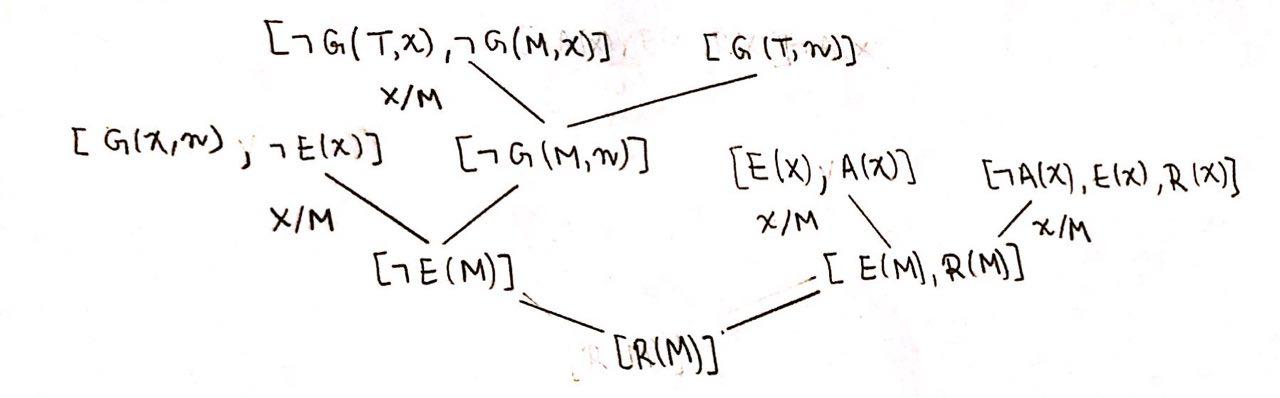 [¬G(T,x),¬G(M,x)] [G(T,n)]
x/M
[G(x,n), ¬E(x)] [¬G(M,n)] [E(x), A(x)] [¬A(x),E(x),R(x)]
x/M x/M x/M
[¬E(M)] [E(M),R(M)]
[R(M)]